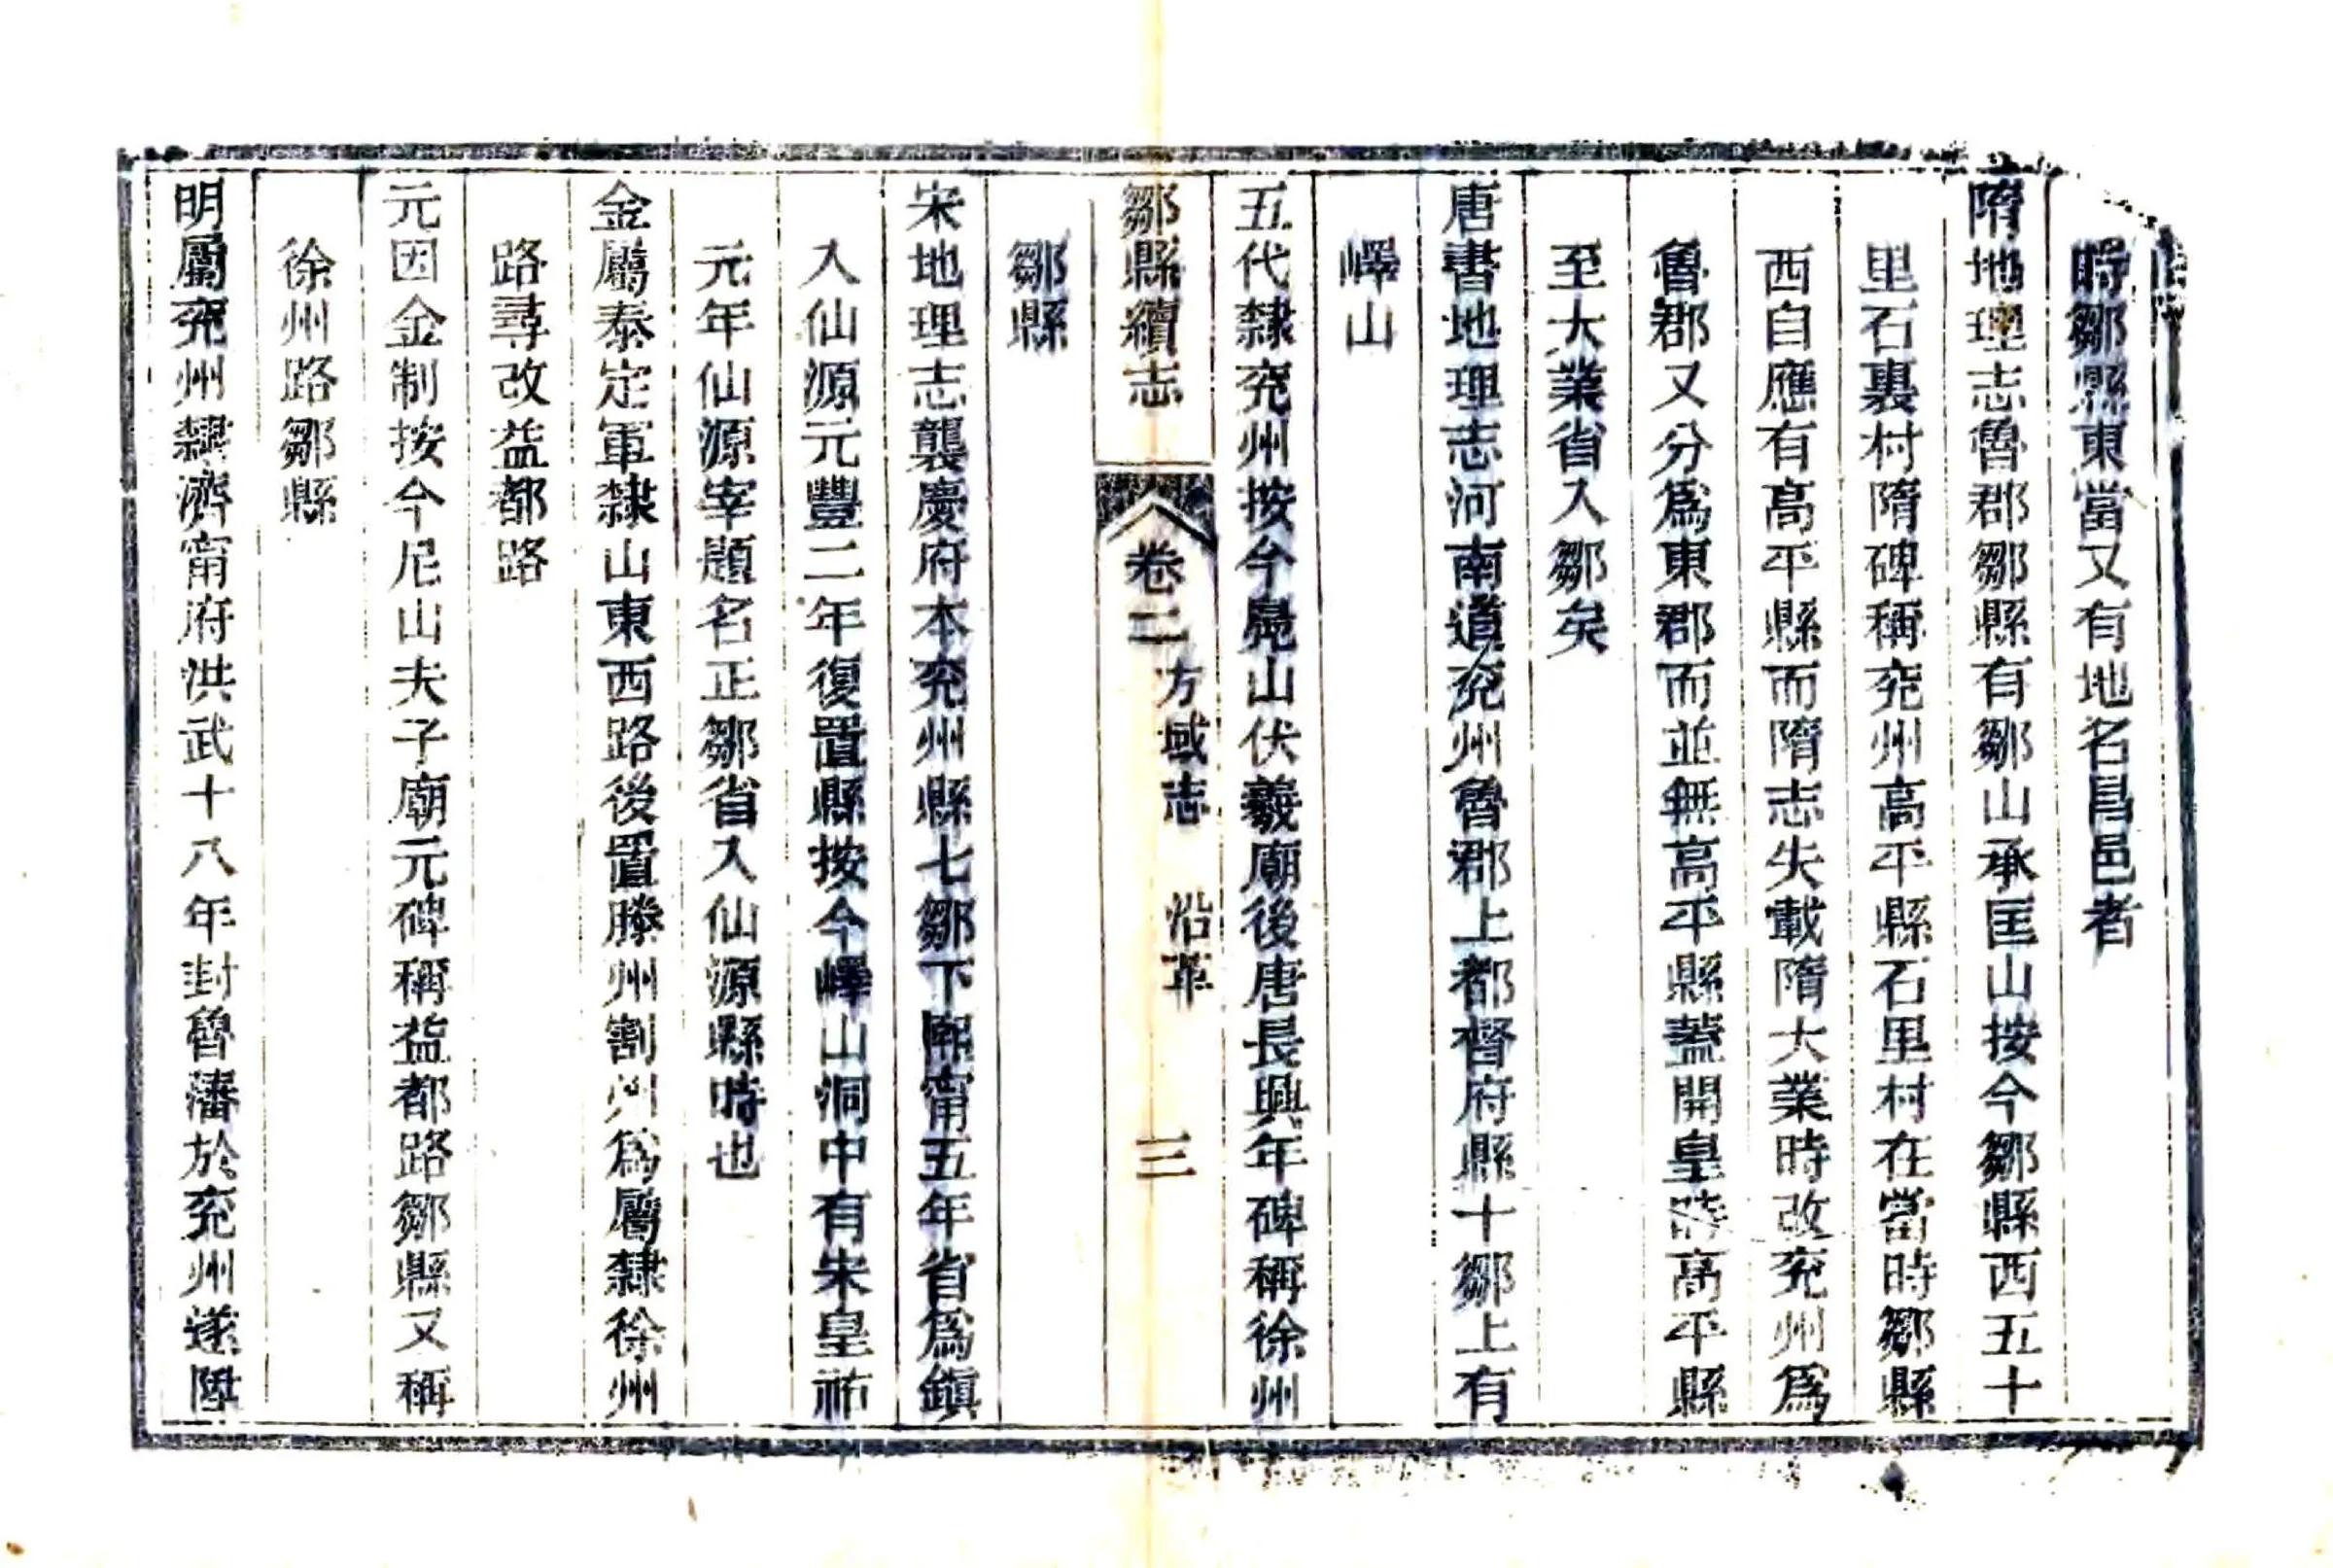 時鄒縣東當又有地名昌邑者
隋地理志魯郡鄒縣有鄒山承匡山按今鄒縣西五十
里石裏村隋碑稱兖州高平縣石里村在當時鄒縣
西自應有高平縣而隋志失載隋大業時改兖州爲
魯郡又分爲東郡而並無高平縣蓋開皇時高平縣
至大業省入鄒矣
唐書地理志河南道兖州魯郡上都督府縣十鄒上有
嶧山
五代隸兖州按今鳧山伏羲廟後唐長興年碑稱徐州
鄒縣續志 卷二 方域志 沿革 三
鄒縣
宋地理志襲慶府本兖州縣七鄒下熙甯五年省爲鎮
入仙源元豐二年復置縣按今嶧山洞中有朱皇祐
元年仙源宰題名正鄒省入仙源縣時也
金屬泰定軍隸山東西路後置滕州割州爲屬隸徐州
路尋改益都路
元因金制按今尼山夫子廟元碑稱益都路鄒縣又稱
徐州路鄒縣
明屬兖州隸濟甯府洪武十八年封魯藩於兖州遂陞